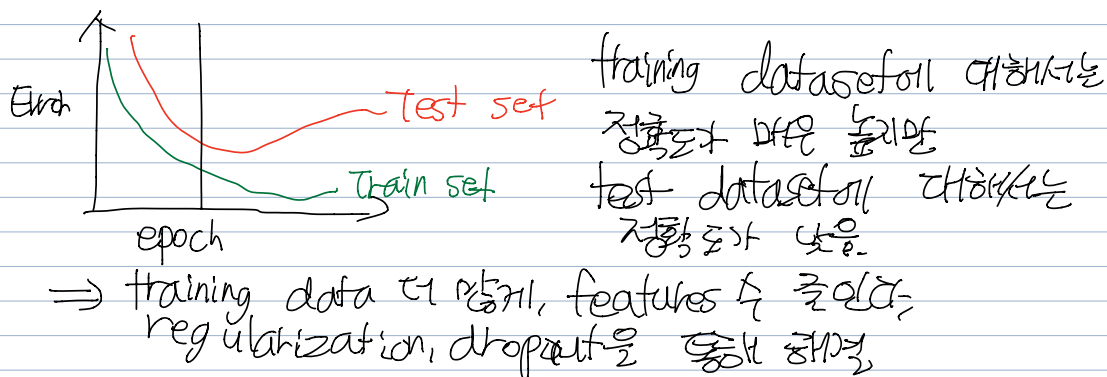 Error
Test set
Train set
epoch
training dataset에 대해서는
정확도가 매우 높지만
test dataset에 대해서는
정확도가 낮음.
⇒ training data 더 많게, features 수 줄인다,
regularization, dropout을 통해 해결